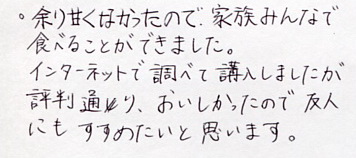 。余り甘くなかったので、家族みんなで
食べることができました。
インターネットで調べて講入しましたが
評判通り、おいしかったので友人
にもすすめたいと思います。